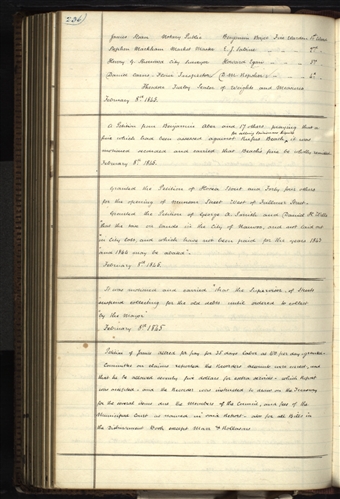 236)
James Sloan Notary Public Benjamin Boyce Fire Warden 1st Ward
Stephen Markham Market Master E. J. Sabine " " 2nd "
Harvey G. Sherwood City Surveyor Howard Egan " " 3rd "
Daniel Carns Stone Inspector D. M. Repsher " " 4th "
Theodore Turley Sealer of Weights and Measures
February 8th 1845.
A Petition from Benjamin Aber and 17 others, praying that a
fine which had been assessed against Rufus Beach, it was
for selling Spirituous Liquors
motioned seconded and carried that Beach's fine be wholly remitted
February 8th 1845.
Granted the Petition of Horace and forty four others
for the opening of Munson Street West of Fullmer Street.
Granted the Petition of George A. Smith and Daniel H. Wells
"that the tax on lands in the City of Nauvoo, and not laid out
in City lots, and which have not been paid for the years 1843
and 1844 may be abated".
February 8th 1845.
It was motioned and carried "that the Supervisor, of Streets
suspend collecting for the old debts until ordered to collect
"by the Mayor"
February 8th 1845.
Petition of James Allred for pay for 35 days labor at $1 per day, granted.
Committee on claims reported the Recorders account was correct, and
that he be allowed seventy five dollars for extra services - which Report
was accepted - and the Recorder was instructed to draw on the Treasury
for the several items and the Members of the Council, and fees of the
Municipal Court as named in said report - also for all Bills in
the Disbursement Book except